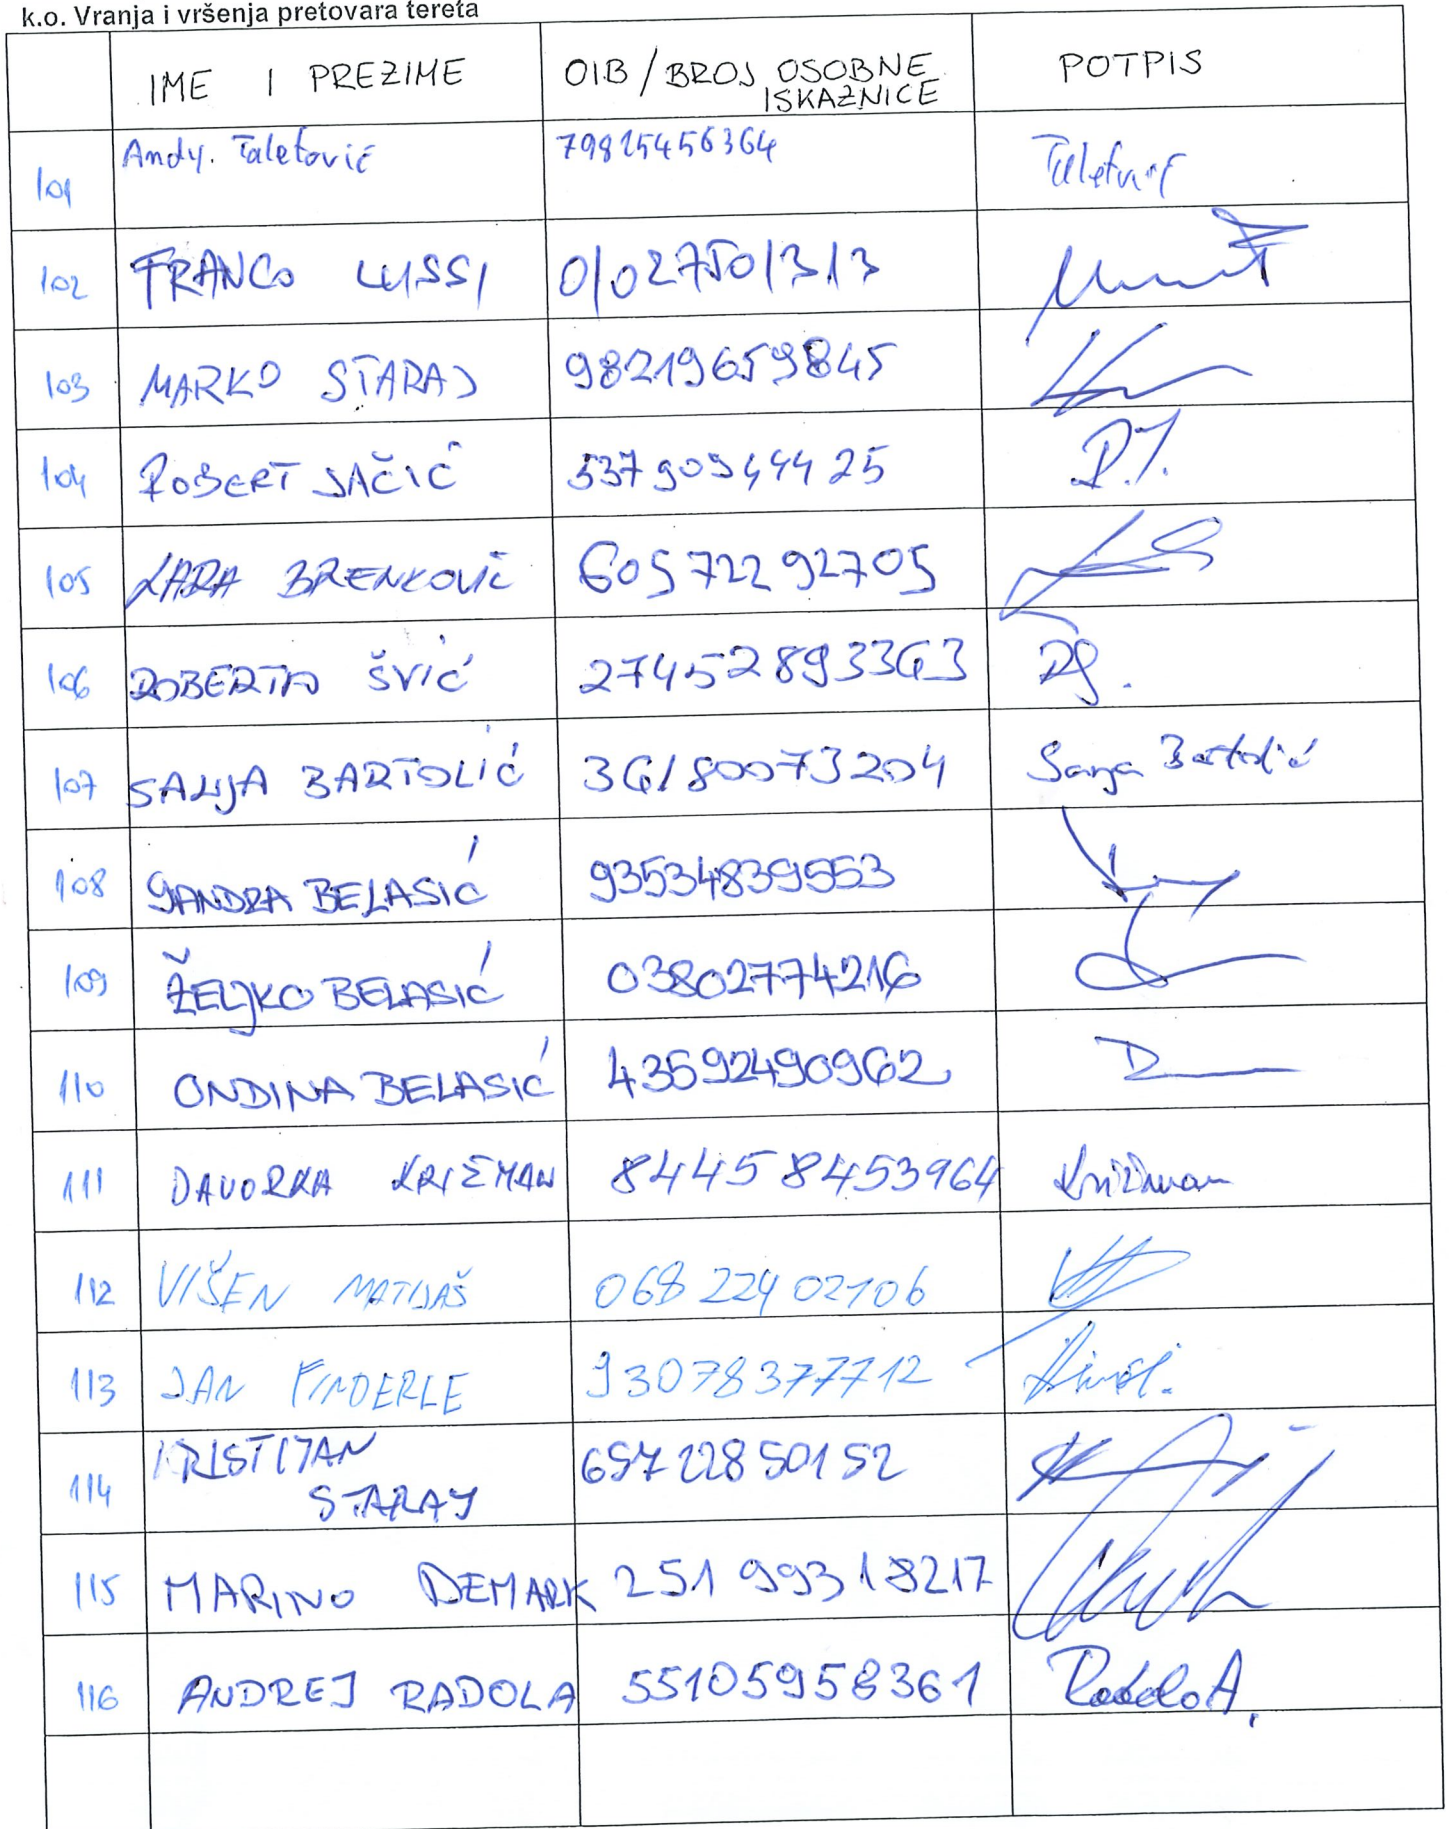 k.o. Vranja i vršenja pretovara tereta
IME I PREZIME OIB / BROJ OSOBNE ISKAZNICE POTPIS
101 Andy. Taletović 79825456364 Taletović
102 FRANCO LUSSI
103 MARKO STARAJ 98219659845
104 ROBERT JAČIĆ 53790944425 R.J.
105 LARA BRENKOVIĆ 60572292705
106 ROBERTO ŠVIĆ 27452893363 RŠ.
107 SANJA BARTOLIĆ 36180073204 Sanja Bartolić
108 SANDRA BELASIĆ 93534839553
109 ŽELJKO BELASIĆ 03802774216
110 ONDINA BELASIĆ 43592490962
111 DAVORKA KRIŽMAN 844458453964 Križman
112 VIŠEN MATIJAŠ 06822402106
113 JAN FINDERLE 93078377712
114 KRISTIJAN
STARAJ 65722850152
115 MARINO DEMARK 25199318217
116 ANDREJ RADOLA 55105958361 Radola A.